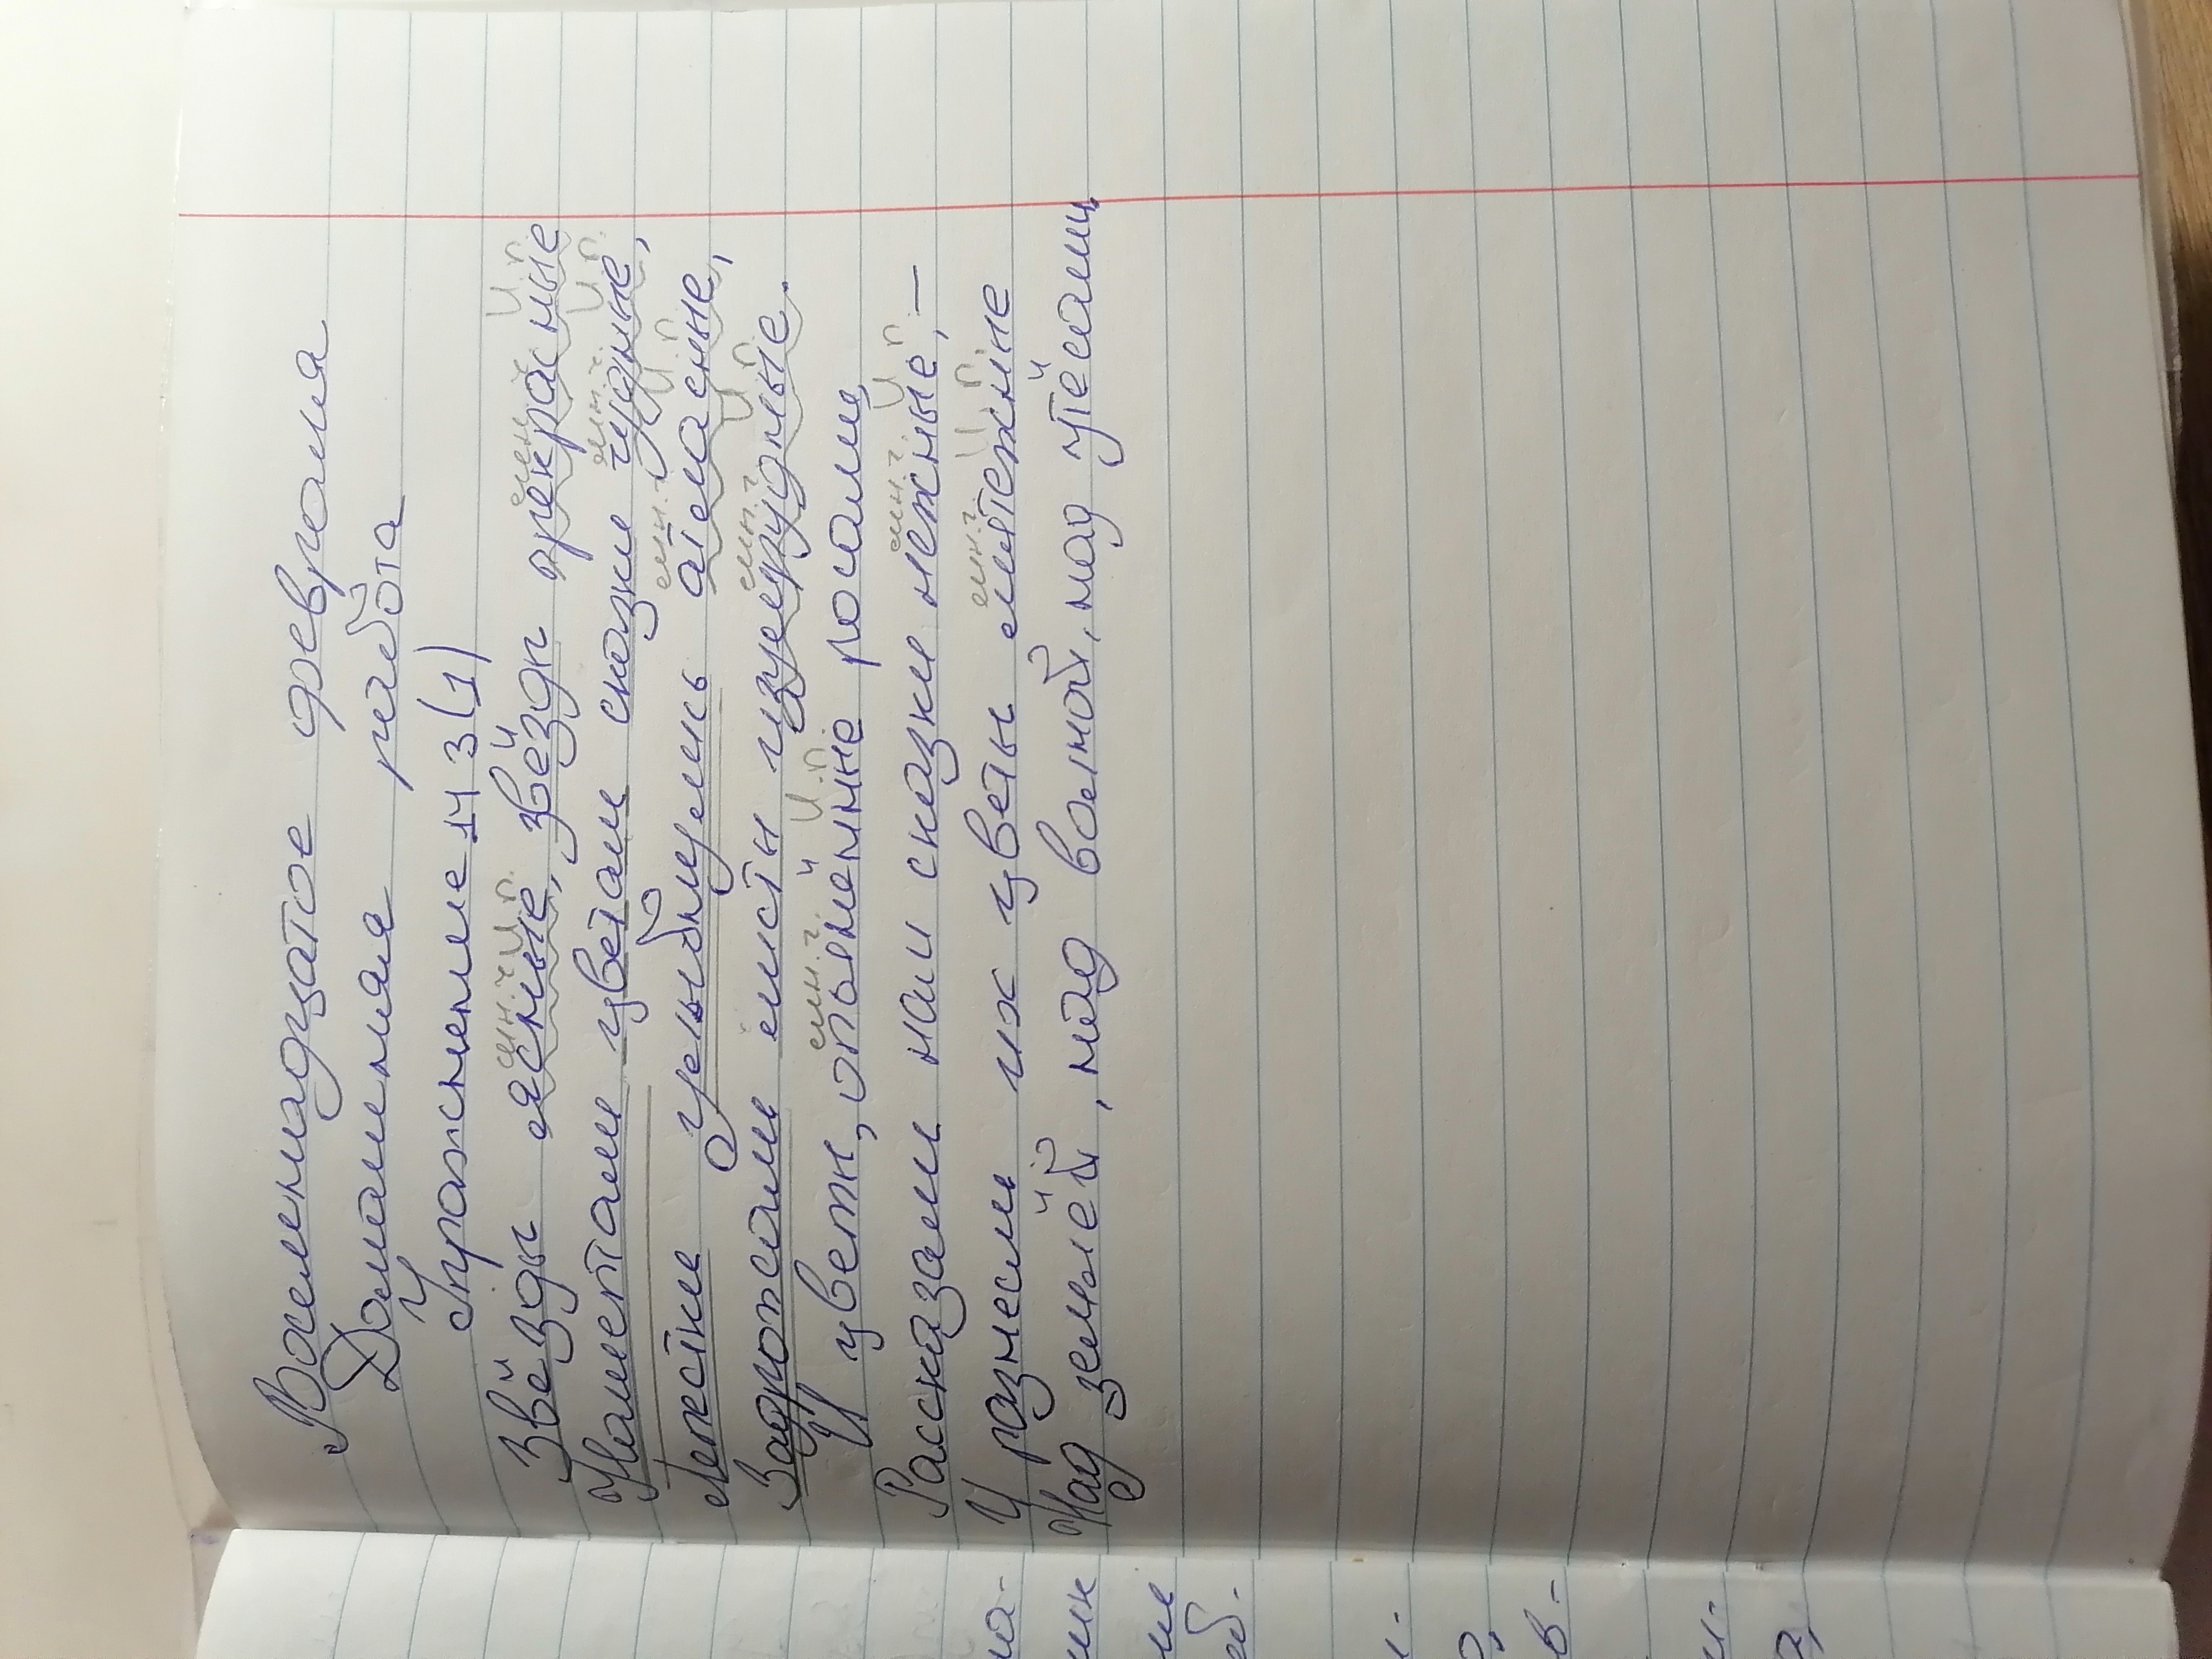 Восемнадцатое февраля
Домашняя работа
Упражнение 143(1)
мн.ч И.п. мн.ч И.п.
Звёзды ясные, звёзды прекрасные
мн.ч. И.п.
Нашептали цветам сказки чудные,
мн.ч И.п
Лепестки улыбнулись атласные,
мн.ч И.п
Задрожали листы изумрудные.
мн.ч И.п.
И цветы, опьянённые росами,
мн.ч. И.п.
Рассказали нам сказки нежные, –
мн.ч И.п
И разнесли их цветы мятежные
Над землёй, над волной, над утёсами.